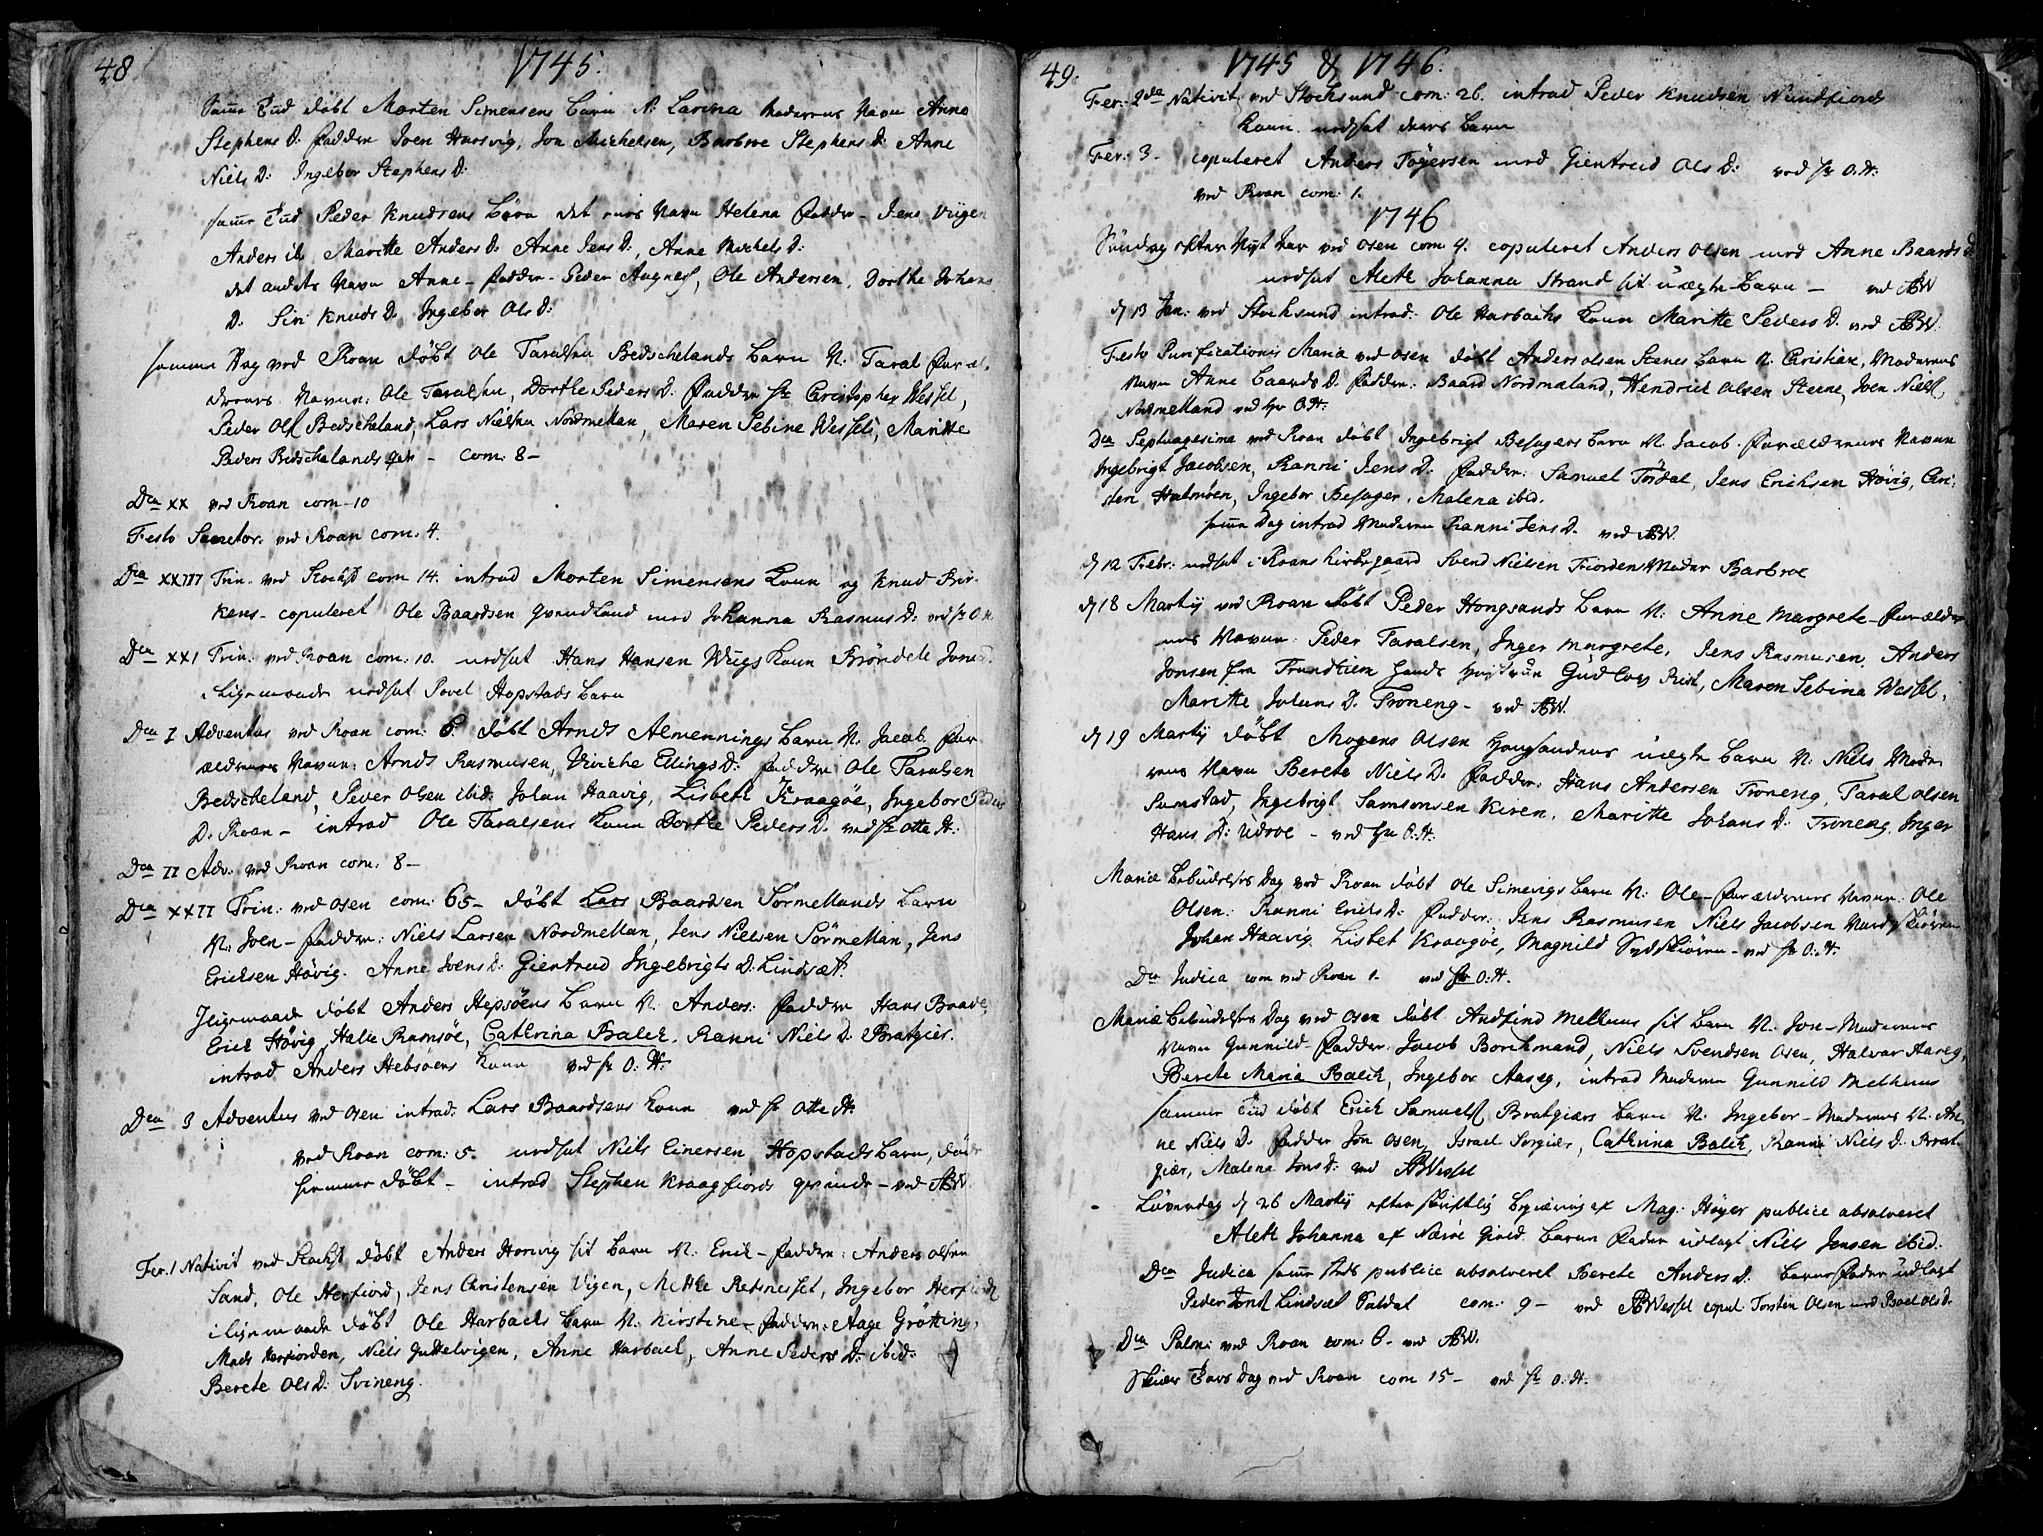 48
1745.
Samme Tiid døbt Morten Simensens barn N: Larina Moderens Navn Anne
Stephens D. Faddere Joen Harsvig, Jon Michelsen, Barbroe Stephens D. Anne
Niels D: Ingebor Stephens D:
samme Tiid Peder Knudsens børn det eenes Navn Helena Faddere - Jens Viigen
Anders ib. Maritte Anders D. Anne Jens D:, Anne Michels D:
det andets Navn Anne - Faddere - Peder Hugnes, Ole Andersen, Dorthe Johans
D. Siri Knuds D. Ingebor Ols D:
samme Dag ved Roan døbt Ole Taralsen Bedschelands barn N. Taral Foræl,
drenes Navne: Ole Taralsen, Dorthe Peders D. Faddere Hr Christopher Wessel,
Peder Ols. Bedscheland, Lars Nielsen Nordmellan, Maren Sebine Wessels, Maritte
Peders Bedschelands - com: 8 -
Dca XX ved Roan com - 10
Festo Sanctor. ved Roan com: 4.
Dca XXIII Trin. ved Stochs. com 14. introd Morten Simensens Kone og Knud
kens - copuleret Ole Baardsen Qvendland med Johanna Rasmus D: ved Hr O. H.
Dca XXI Trin. ved Roan com: 10. nedsat Hans Hansen Wugs Kone Brøndele Jons D.
iligemaade nedsat Povel Hopstads barn
Dca I Adventus ved Roan com: 6. døbt Arnds Almennings barn N. Jacob For
ældrenes Navne: Arnds Rasmusen, Viviche Ellings D: Faddere Ole Taralsen
Bedscheland, Peder Olsen ibid: Johan Haavig, Lisbeth Kraagøe, Ingebor Peders
D. Roan - introd Ole Taralsens Kone Dorthe Peders D. ved Hr Otte H:
Dca II Adv: ved Roan com: 8 -
Dca XXII Trin: ved Osen com: 65 - døbt Lars Baardsen Sørmellands barn
N. Joen - Faddere: Niels Larsen Nordmellan, Jens Nielsen Sørmellan, Jens
Ericksen Høvig. Anne Joens D: Gientrud Ingebrigts D. Lindsæt.
Iligemaade døbt Anders Hepsøens barn N. Anders: Faddere Hans Braade
Erich Høvig, Halle Ramsøe, Cathrina Balch. Ranni Niels D. Bratgier.
introd Anders Hebsøens Kone ved Hr O. H:
Dca 3 Adventus ved Osen introd: Lars Baardsens Kone ved Hr Otte H:
ved Roan com: 5. nedsat Niels Einersen Hopstads barn,
hiemme døbt - introd Stephen Kraagfiords qvinde - ved ABW.
Fer. 1 Nativit ved Stochs. døbt Anders Homvig sit barn N. Erich - Faddere: Anders Olsen
Sand, Ole Herfiord, Jens Christensen Vigen, Mette Retnesset, Ingebor Herfiord
iligemaade døbt Ole Harbachs barn N: Kirstine - Faddere: Aage Grøtting,
Mads Herfiorden, Niels Guttelvigen, Anne Harbach, Anne Peders D. ibid:
Berete Ols D: Svineng.
49.
1745 & 1746.
Fer: 2da Nativit: ved Stochsund com: 26. introd Peder Knudsen Nundfiords
Kone. nedsat deres barn
Fer: 3 - copuleret Anders Togersen med Gientrud Ols D: ved Hr O. H:
ved Roan com: 1.
1746
Søndag efter Nyt Aar ved Osen com 9. copuleret Anders Olsen med Anne Baards D.
nedsat Aleth Johanna Strand sit uægte barn - ved ABW
d 13 Jan: ved Stochsund introd: Ole Harbachs Kone Maritte Peders D. ved ABW.
Festo Purificationis Maria ved Osen døbt Anders Olsen Stenes barn N. Christian, Moderens
Navn Anne Baards D. Faddere: Baard Nordmeland, Hendrich Olsen Steene, Joen Niels.
Nordmelland ved Hr O. H.
Dca Septuagesima ved Roan døbt Ingebrigt Besagers barn N. Jacob. Forældrenes Navne
Ingebrigt Jacobsen, Ranni Jens D. Faddere: Samuel Tørdal, Jens Erichsen Høvig, Chri:
sten Halmøen, Ingebor Besager, Malena ibid.
samme Dag introd Moderen Ranni Jens D. ved ABW.
d 12 Febr: nedsat i Roans Kirkegaard Svend Nielsen Fiordens Moder Barbroe
d 18 Martij ved Roan døbt Peder Hongsands barn N. Anne Margrete - Forældre
nes Navne: Peder Taralsen, Inger Margrete. Jens Rasmusen, Anders
Jonsen fra Trundhiem hands Gudlov Rist, Maren Sebina Wessel,
Maritte Johans D. Troneng - ved ABW.
d 19 Martij døbt Mogens Olsen Hongsandnes uægte barn N. Niels Mode
rens Navn Berete Niels D. Faddere: Hans Andersen Troneng, Taral Olsen
Sumstad, Ingebrigt Samsonsen Kiren, Maritte Johans D. Troneng, Inger
Hans D: Udroe - ved Hr O. H.
Mariæ bebudelses Dag ved Roan døbt Ole Simevigs barn N: Ole - Forældrenes Navne: Ole
Olsen: Ranni Erichs D: Faddere: Jens Rasmusen Niels Jacobsen Nordschiøren
Johan Haavig Lisbet Kraagøe, Magnild Sydschiøren - ved Hr O. H.
Dca Judica com ved Roan 1. ved Hr O. H.
Mariæ bebudelses Dag ved Osen døbt Andfind Melhuus sit barn N. Jon - Moderens
Navn Gunnild. Faddere: Jacob Borchmand, Niels Svendsen Osen, Halvor Aaseg,
Berete Maria Balch, Ingebor Aaseg, introd Moderen Gunnild Melhuus
samme Tiid døbt Erich Samuels. Bratgiærs barn N. Ingebor - Moderens N. An
ne Niels D. Faddere Jon Osen, Israel Sorgiær, Cathrina Balch, Ranni Niels D. Brat
giær, Malena Jons D: ved ABWessel
Løverdag d 26 Martij efter skriftlig begiæring af Mag: Høyer publice absolveret
Aleth Johanna af Nærøe Gield. Barne Fader udlagt Niels Jensen ibid.
Dca Judica samme steds publice absolveret Berete Anders D. Barne Fader udlagt
Peder Lindsæt com. 9 - ved ABWessel copul: Torsten Olsen med Boel Ols D.
Dca Palm: ved Roan com: 6. ved ABW.
Skiær Tors Dag ved Roan com 15 - ved Hr O. H.